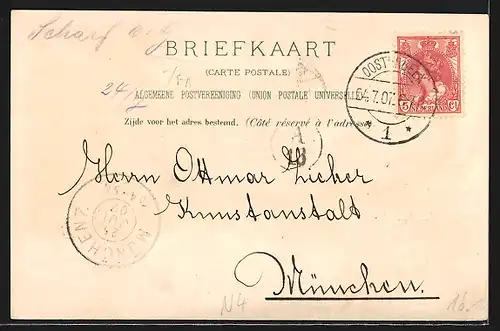 BRIEFKAART
(CARTE POSTALE)
24/7
ALGEMEENE POSTVEREENIGING (UNION POSTALE UNIVERSELLE)
Zijde voor het adres bestemd. (Côté réservé à l'adresse)
5 Ct
NEDERLAND
7.07
1
A
Herrn Ottmar Zieher
Kunstanstalt
München.
MÜNCHEN
N4
16.-